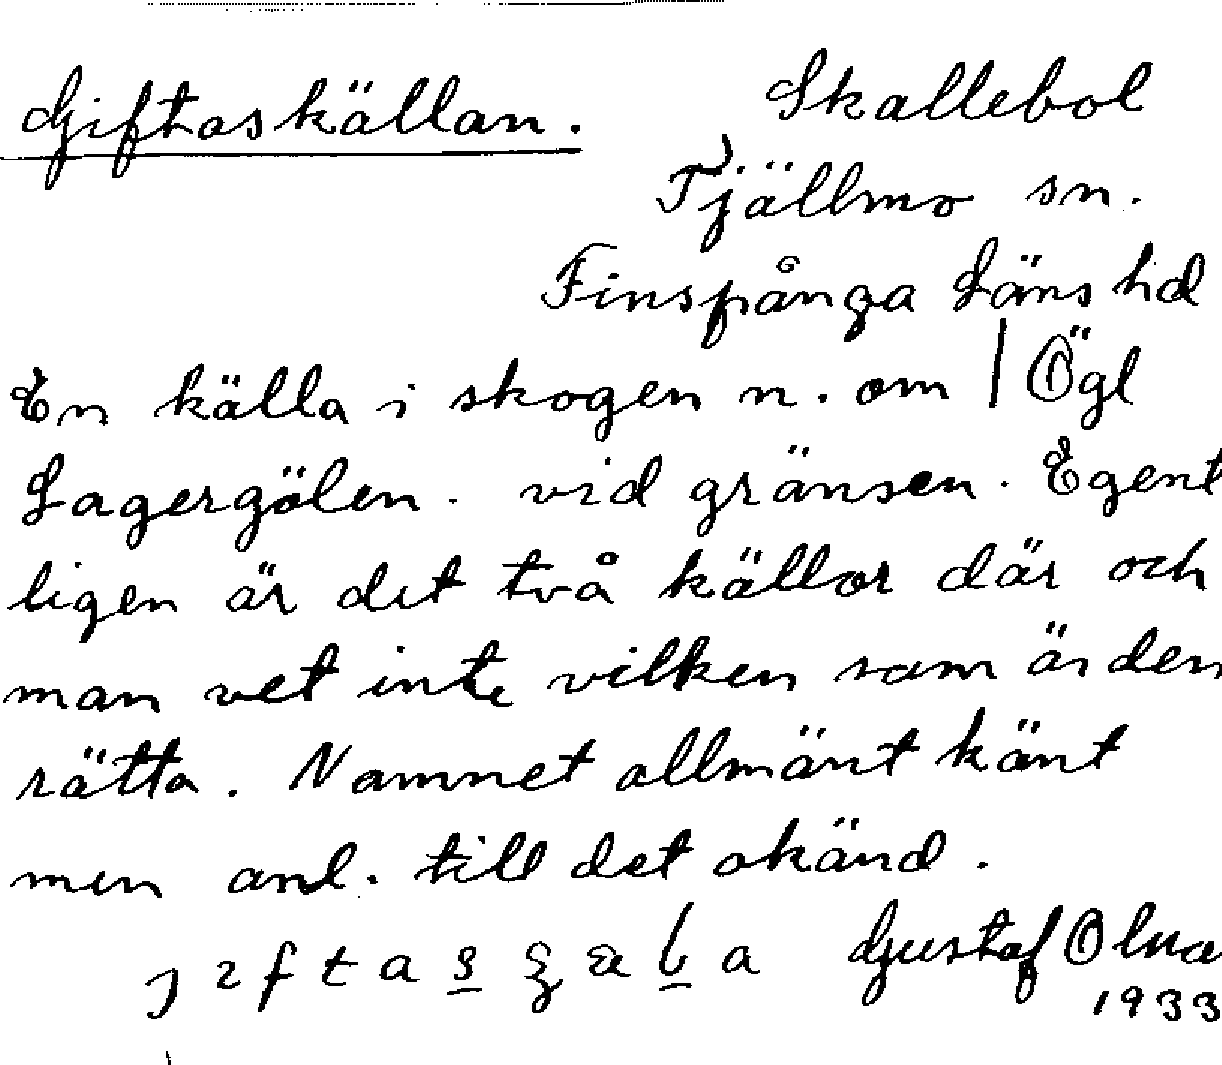 Giftaskällan. Skallebol
Tjällmo sn.
Finspånga Läns hd
En källa i skogen n. om | Ögl
Lagergölen. vid gränsen. Egent
ligen är det två källor där och
man vet inte vilken som är den
rätta. Namnet allmänt känt
men anl. till det okänd.
Gustaf Olna
1933